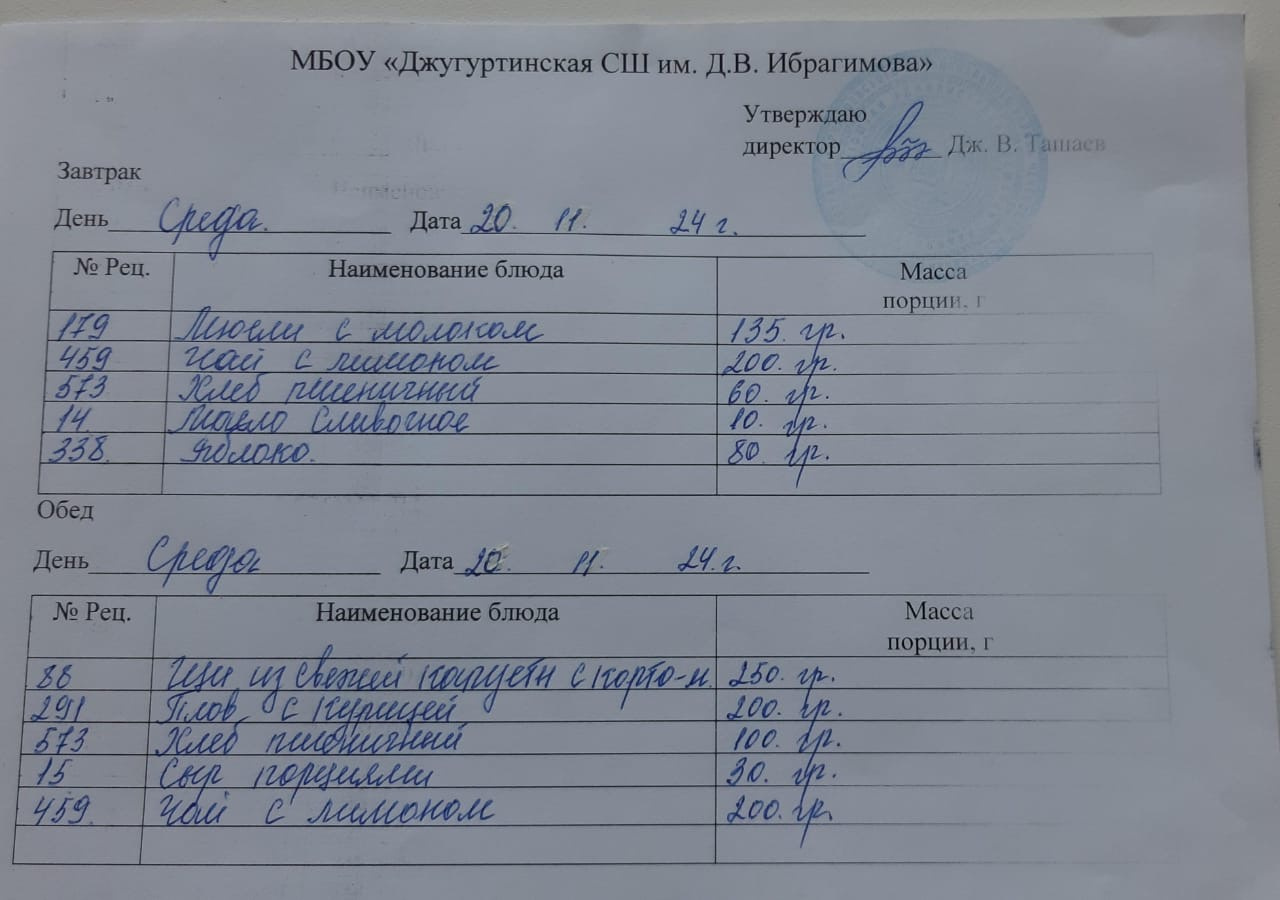 МБОУ «Джугуртинская СШ им. Д.В. Ибрагимова»
Утверждаю
директор Дж. В. Ташаев
Завтрак
День Среда. Дата 20. 11. 24 г.
№ Рец. Наименование блюда Масса
порции, г
179 Мюсли с молоком 135. гр.
459 Чай с лимоном 200. гр.
573 Хлеб пшеничный 60. гр.
14. Масло сливочное 10. гр.
338. Яблоко. 80. гр.
Обед
День Среда Дата 20. 11. 24.г.
№ Рец. Наименование блюда Масса
порции, г
88 Щи из свежей капусты с карто-м. 250. гр.
291 Плов с курицей 200. гр.
573 Хлеб пшеничный 100. гр.
15 Сыр порциями 30. гр.
459. Чай с лимоном 200. гр.